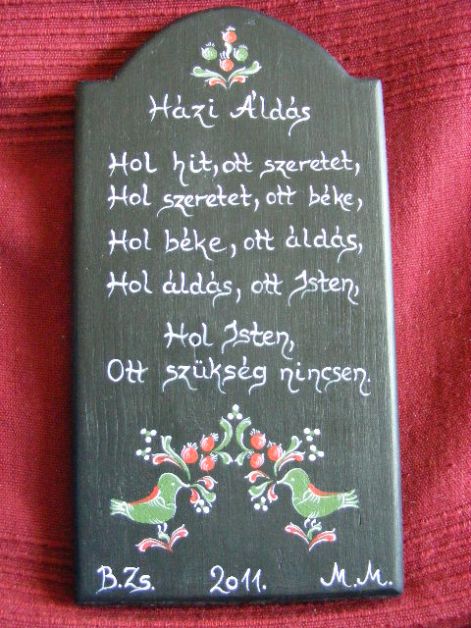 Házi Áldás
Hol hit, ott szeretet,
Hol szeretet, ott béke,
Hol béke, ott áldás,
Hol áldás, ott Isten,
Hol Isten,
Ott szükség nincsen.
B.Zs. 2011. M.M.